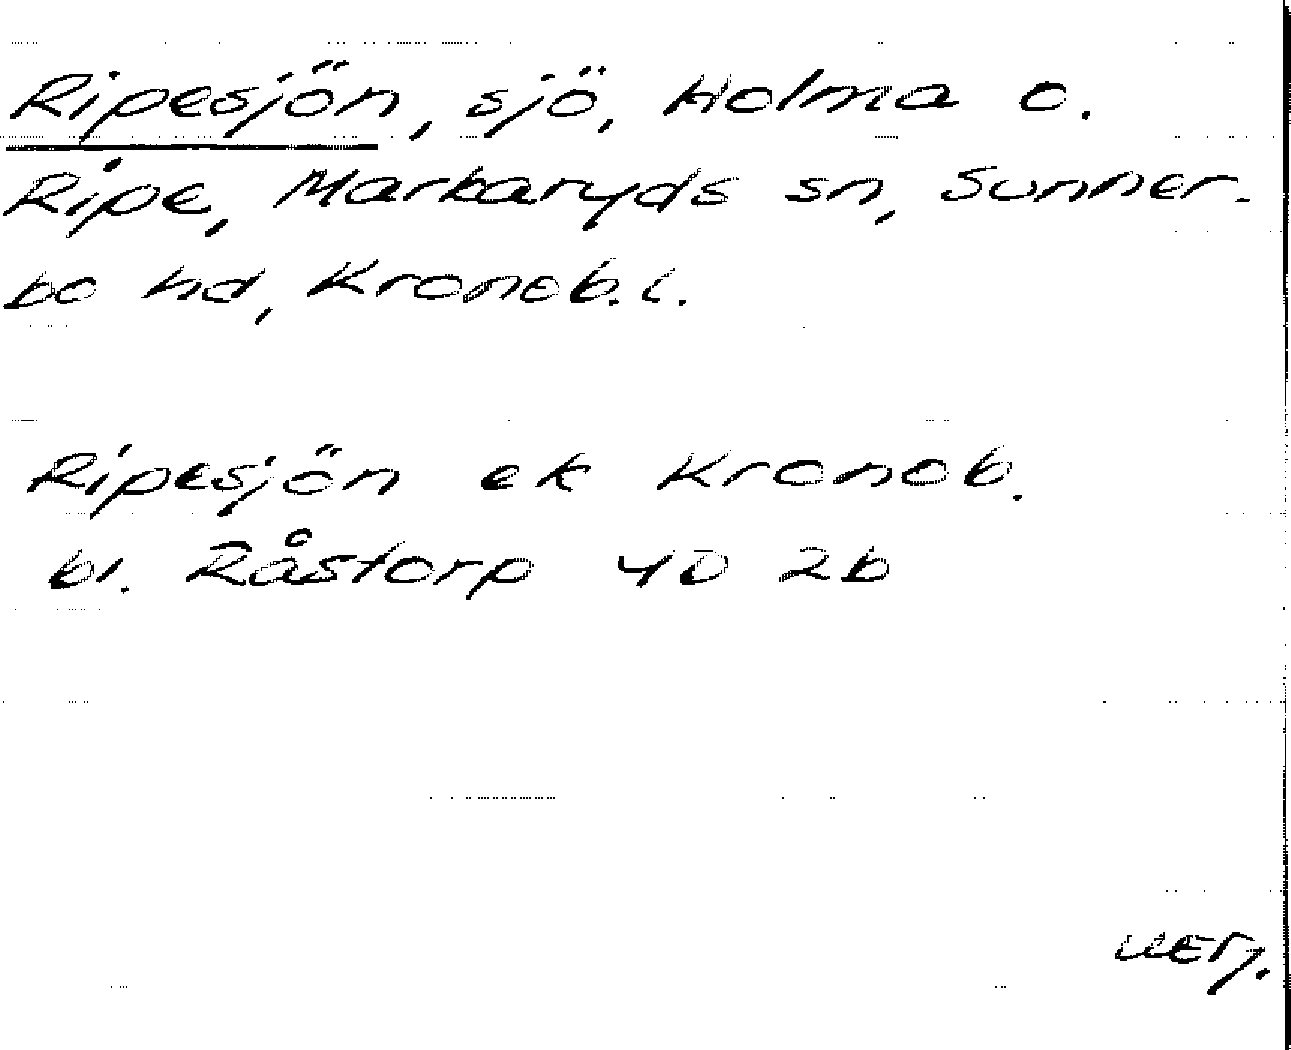 Ripesjön, sjö, Holma o.
Ripe, Markaryds sn, Sunner-
bo hd, Kronob.l.
Ripesjön ek Kronob.
bl. Råstorp 4D 2b